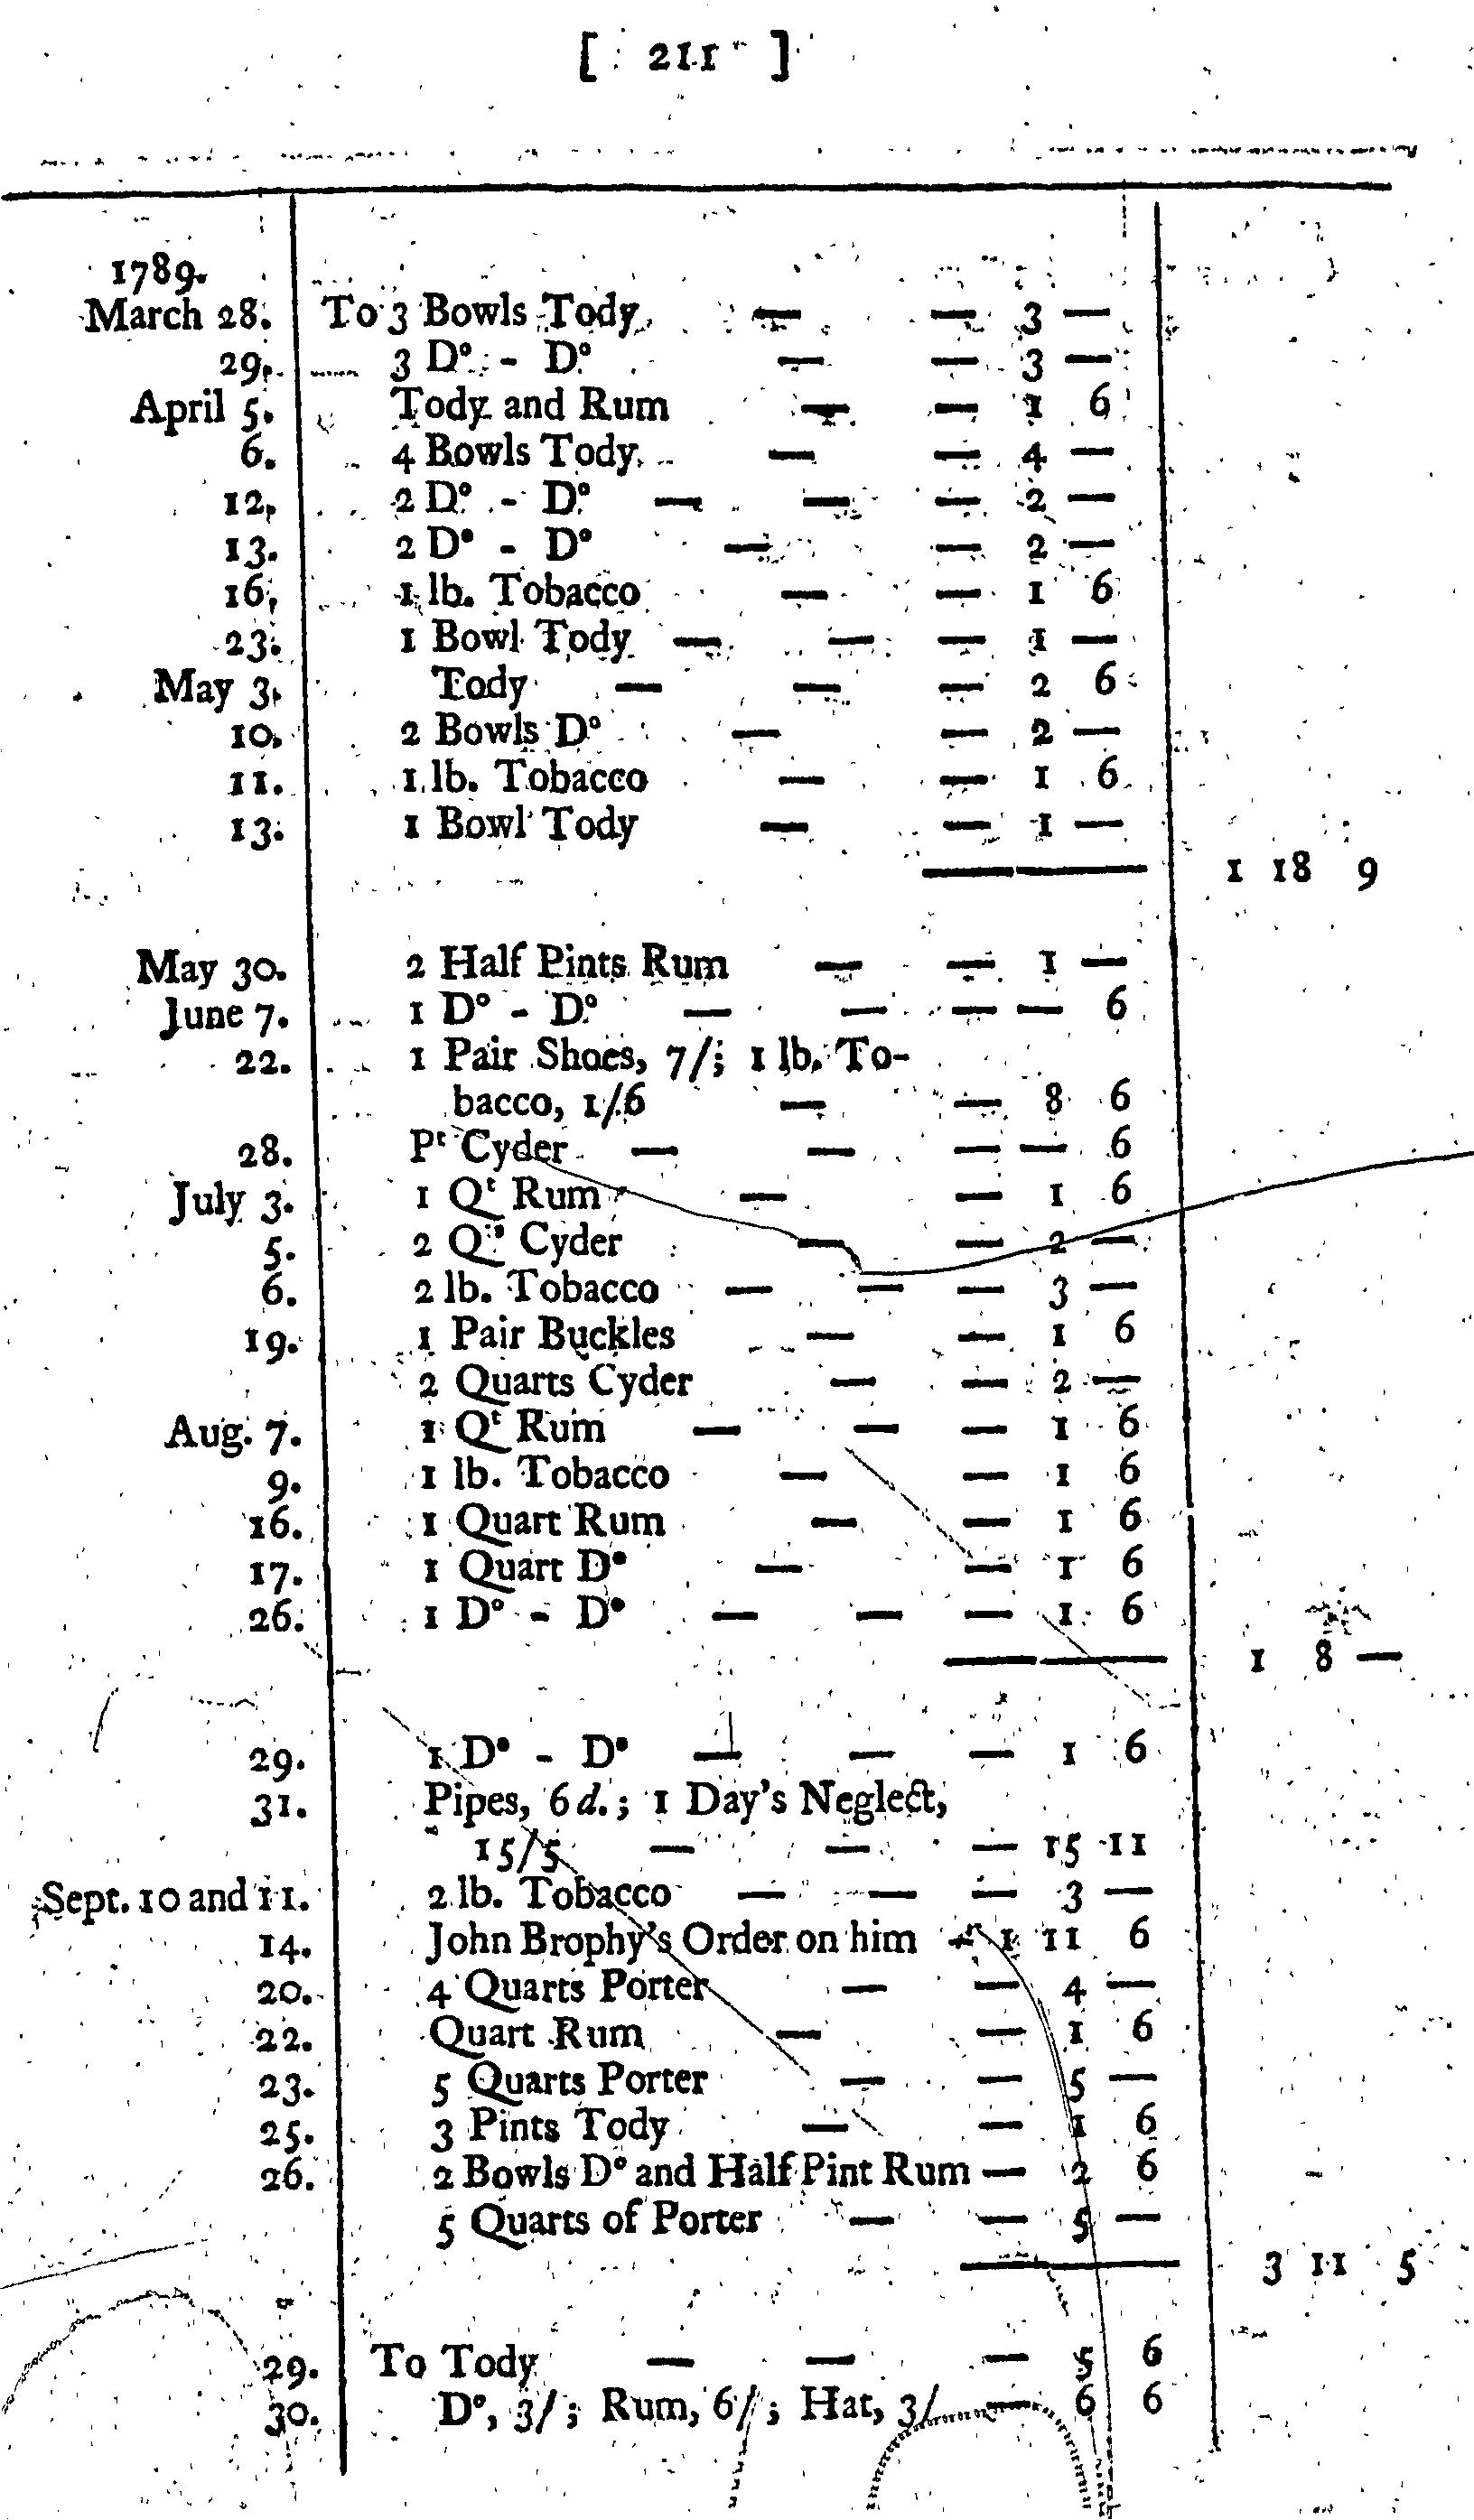 [ 211 ]
1789.
March 28. To 3 Bowls Tody — — 3 —
29. 3 Dº - Dº — — 3 —
April 5. Tody and Rum — — 1 6
6. 4 Bowls Tody — — 4 —
12. 2 Dº - Dº — — — 2 —
13. 2 Dº - Dº — — 2 —
16. 1 lb. Tobacco — — 1 6
23. 1 Bowl Tody — — — 1 —
May 3. Tody — — — 2 6
10. 2 Bowls Dº — — 2 —
11. 1 lb. Tobacco — — 1 6
13. 1 Bowl Tody — — 1 —
1 18 9
May 30. 2 Half Pints Rum — — 1 —
June 7. 1 Dº - Dº — — — — 6
22. 1 Pair Shoes, 7/; 1 lb. To-
bacco, 1/6 — — 8 6
28. Pᵗ Cyder — — — — 6
July 3. 1 Qᵗ Rum — — 1 6
5. 2 Qᵗˢ Cyder — — 2 —
6. 2 lb. Tobacco — — — 3 —
19. 1 Pair Buckles — — 1 6
2 Quarts Cyder — — 2 —
Aug. 7. 1 Qᵗ Rum — — — 1 6
9. 1 lb. Tobacco — — 1 6
16. 1 Quart Rum — — 1 6
17. 1 Quart Dº — — 1 6
26. 1 Dº - Dº — — — 1 6
1 8 —
29. 1 Dº - Dº — — — 1 6
31. Pipes, 6d.; 1 Day's Neglect,
15/5 — — — 15 11
Sept. 10 and 11. 2 lb. Tobacco — — — 3 —
14. John Brophy's Order on him — 1 11 6
20. 4 Quarts Porter — — 4 —
22. Quart Rum — — 1 6
23. 5 Quarts Porter — — 5 —
25. 3 Pints Tody — — 1 6
26. 2 Bowls Dº and Half Pint Rum — 2 6
5 Quarts of Porter — — 5 —
3 11 5
29. To Tody — — — 5 6
30. Dº, 3/; Rum, 6/; Hat, 3/ — 6 6